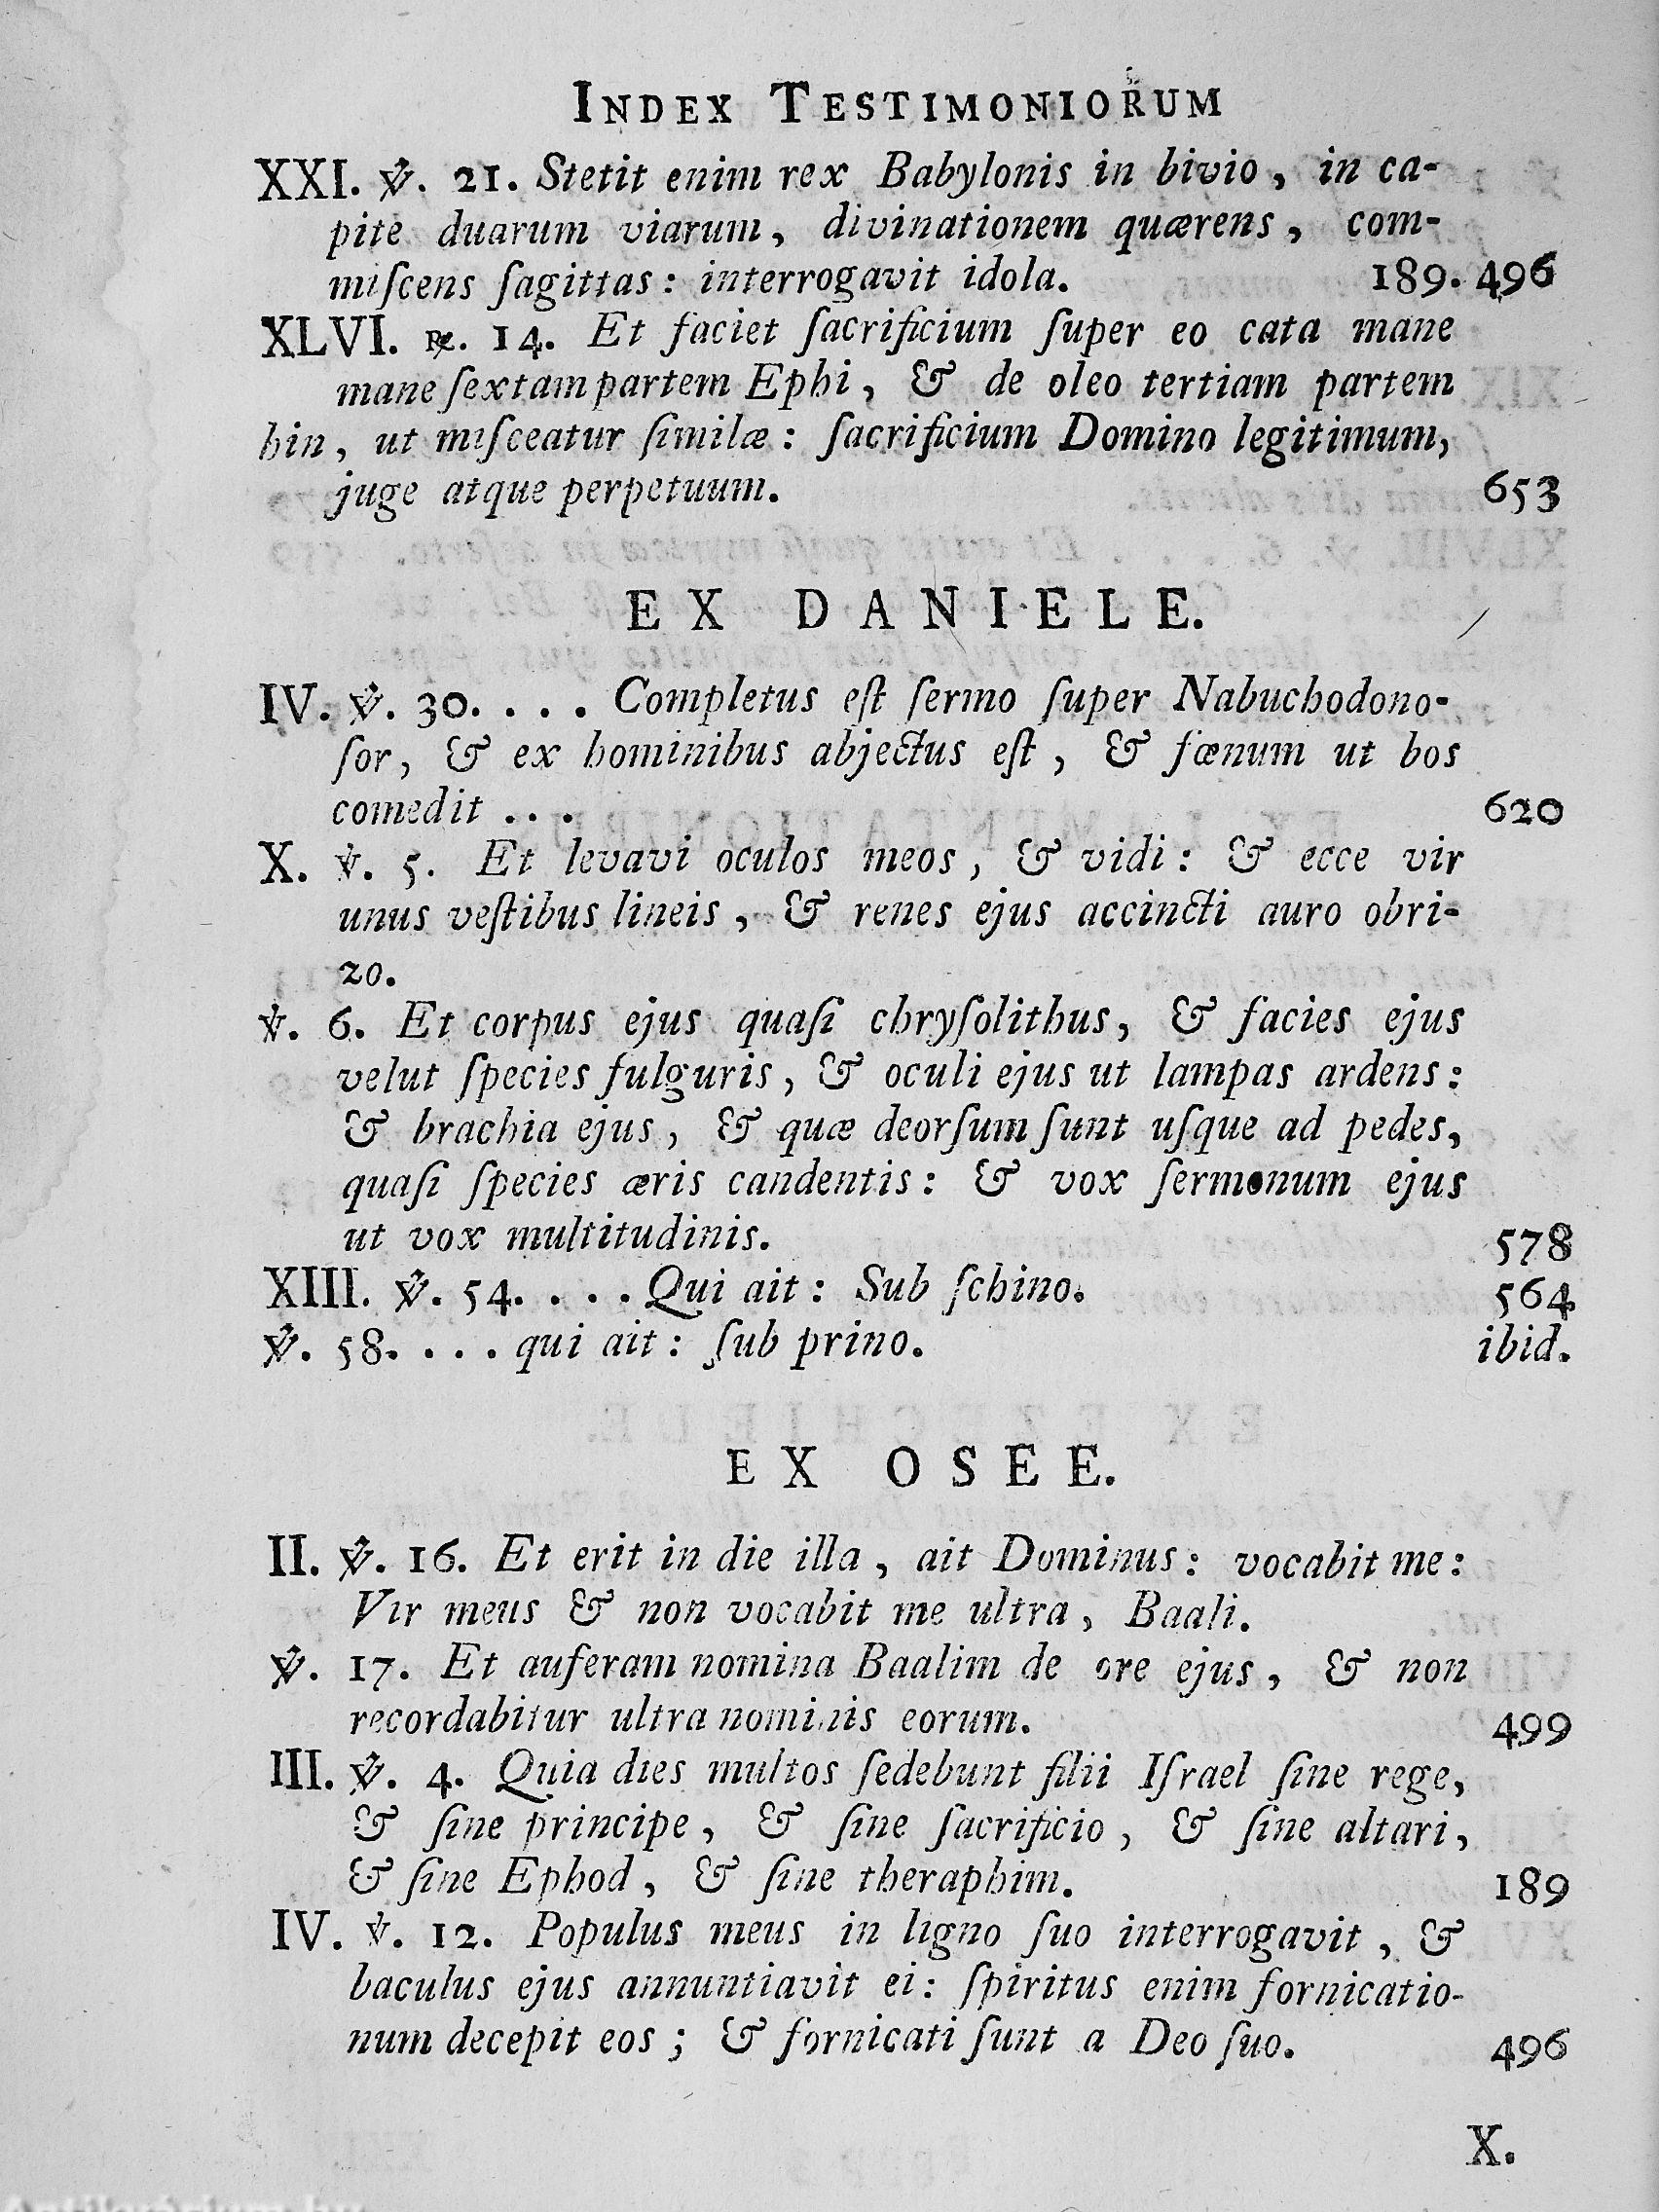 INDEX TESTIMONIORUM
XXI. ℣. 21. Stetit enim rex Babylonis in bivio, in ca-
pite duarum viarum, divinationem quærens, com-
miſcens ſagittas: interrogavit idola. 189. 496
XLVI. ℟. 14. Et faciet ſacrificium ſuper eo cata mane
mane ſextam partem Ephi, & de oleo tertiam partem
hin, ut miſceatur ſimilæ: ſacrificium Domino legitimum,
juge atque perpetuum. 653
EX DANIELE.
IV. ℣. 30. . . . Completus eſt ſermo ſuper Nabuchodono-
ſor, & ex hominibus abjectus eſt, & fœnum ut bos
comedit . . . 620
X. ℣. 5. Et levavi oculos meos, & vidi: & ecce vir
unus veſtibus lineis, & renes ejus accincti auro obri-
zo.
℣. 6. Et corpus ejus quaſi chryſolithus, & facies ejus
velut ſpecies fulguris, & oculi ejus ut lampas ardens:
& brachia ejus, & quæ deorſum ſunt uſque ad pedes,
quaſi ſpecies æris candentis: & vox ſermonum ejus
ut vox multitudinis. 578
XIII. ℣. 54. . . . Qui ait: Sub ſchino. 564
℣. 58. . . . qui ait: ſub prino. ibid.
EX OSEE.
II. ℣. 16. Et erit in die illa, ait Dominus: vocabit me:
Vir meus & non vocabit me ultra, Baali.
℣. 17. Et auferam nomina Baalim de ore ejus, & non
recordabitur ultra nominis eorum. 499
III. ℣. 4. Quia dies multos ſedebunt filii Iſrael ſine rege,
& ſine principe, & ſine ſacrificio, & ſine altari,
& ſine Ephod, & ſine theraphim. 189
IV. ℣. 12. Populus meus in ligno ſuo interrogavit, &
baculus ejus annuntiavit ei: ſpiritus enim fornicatio-
num decepit eos; & fornicati ſunt a Deo ſuo. 496
X.